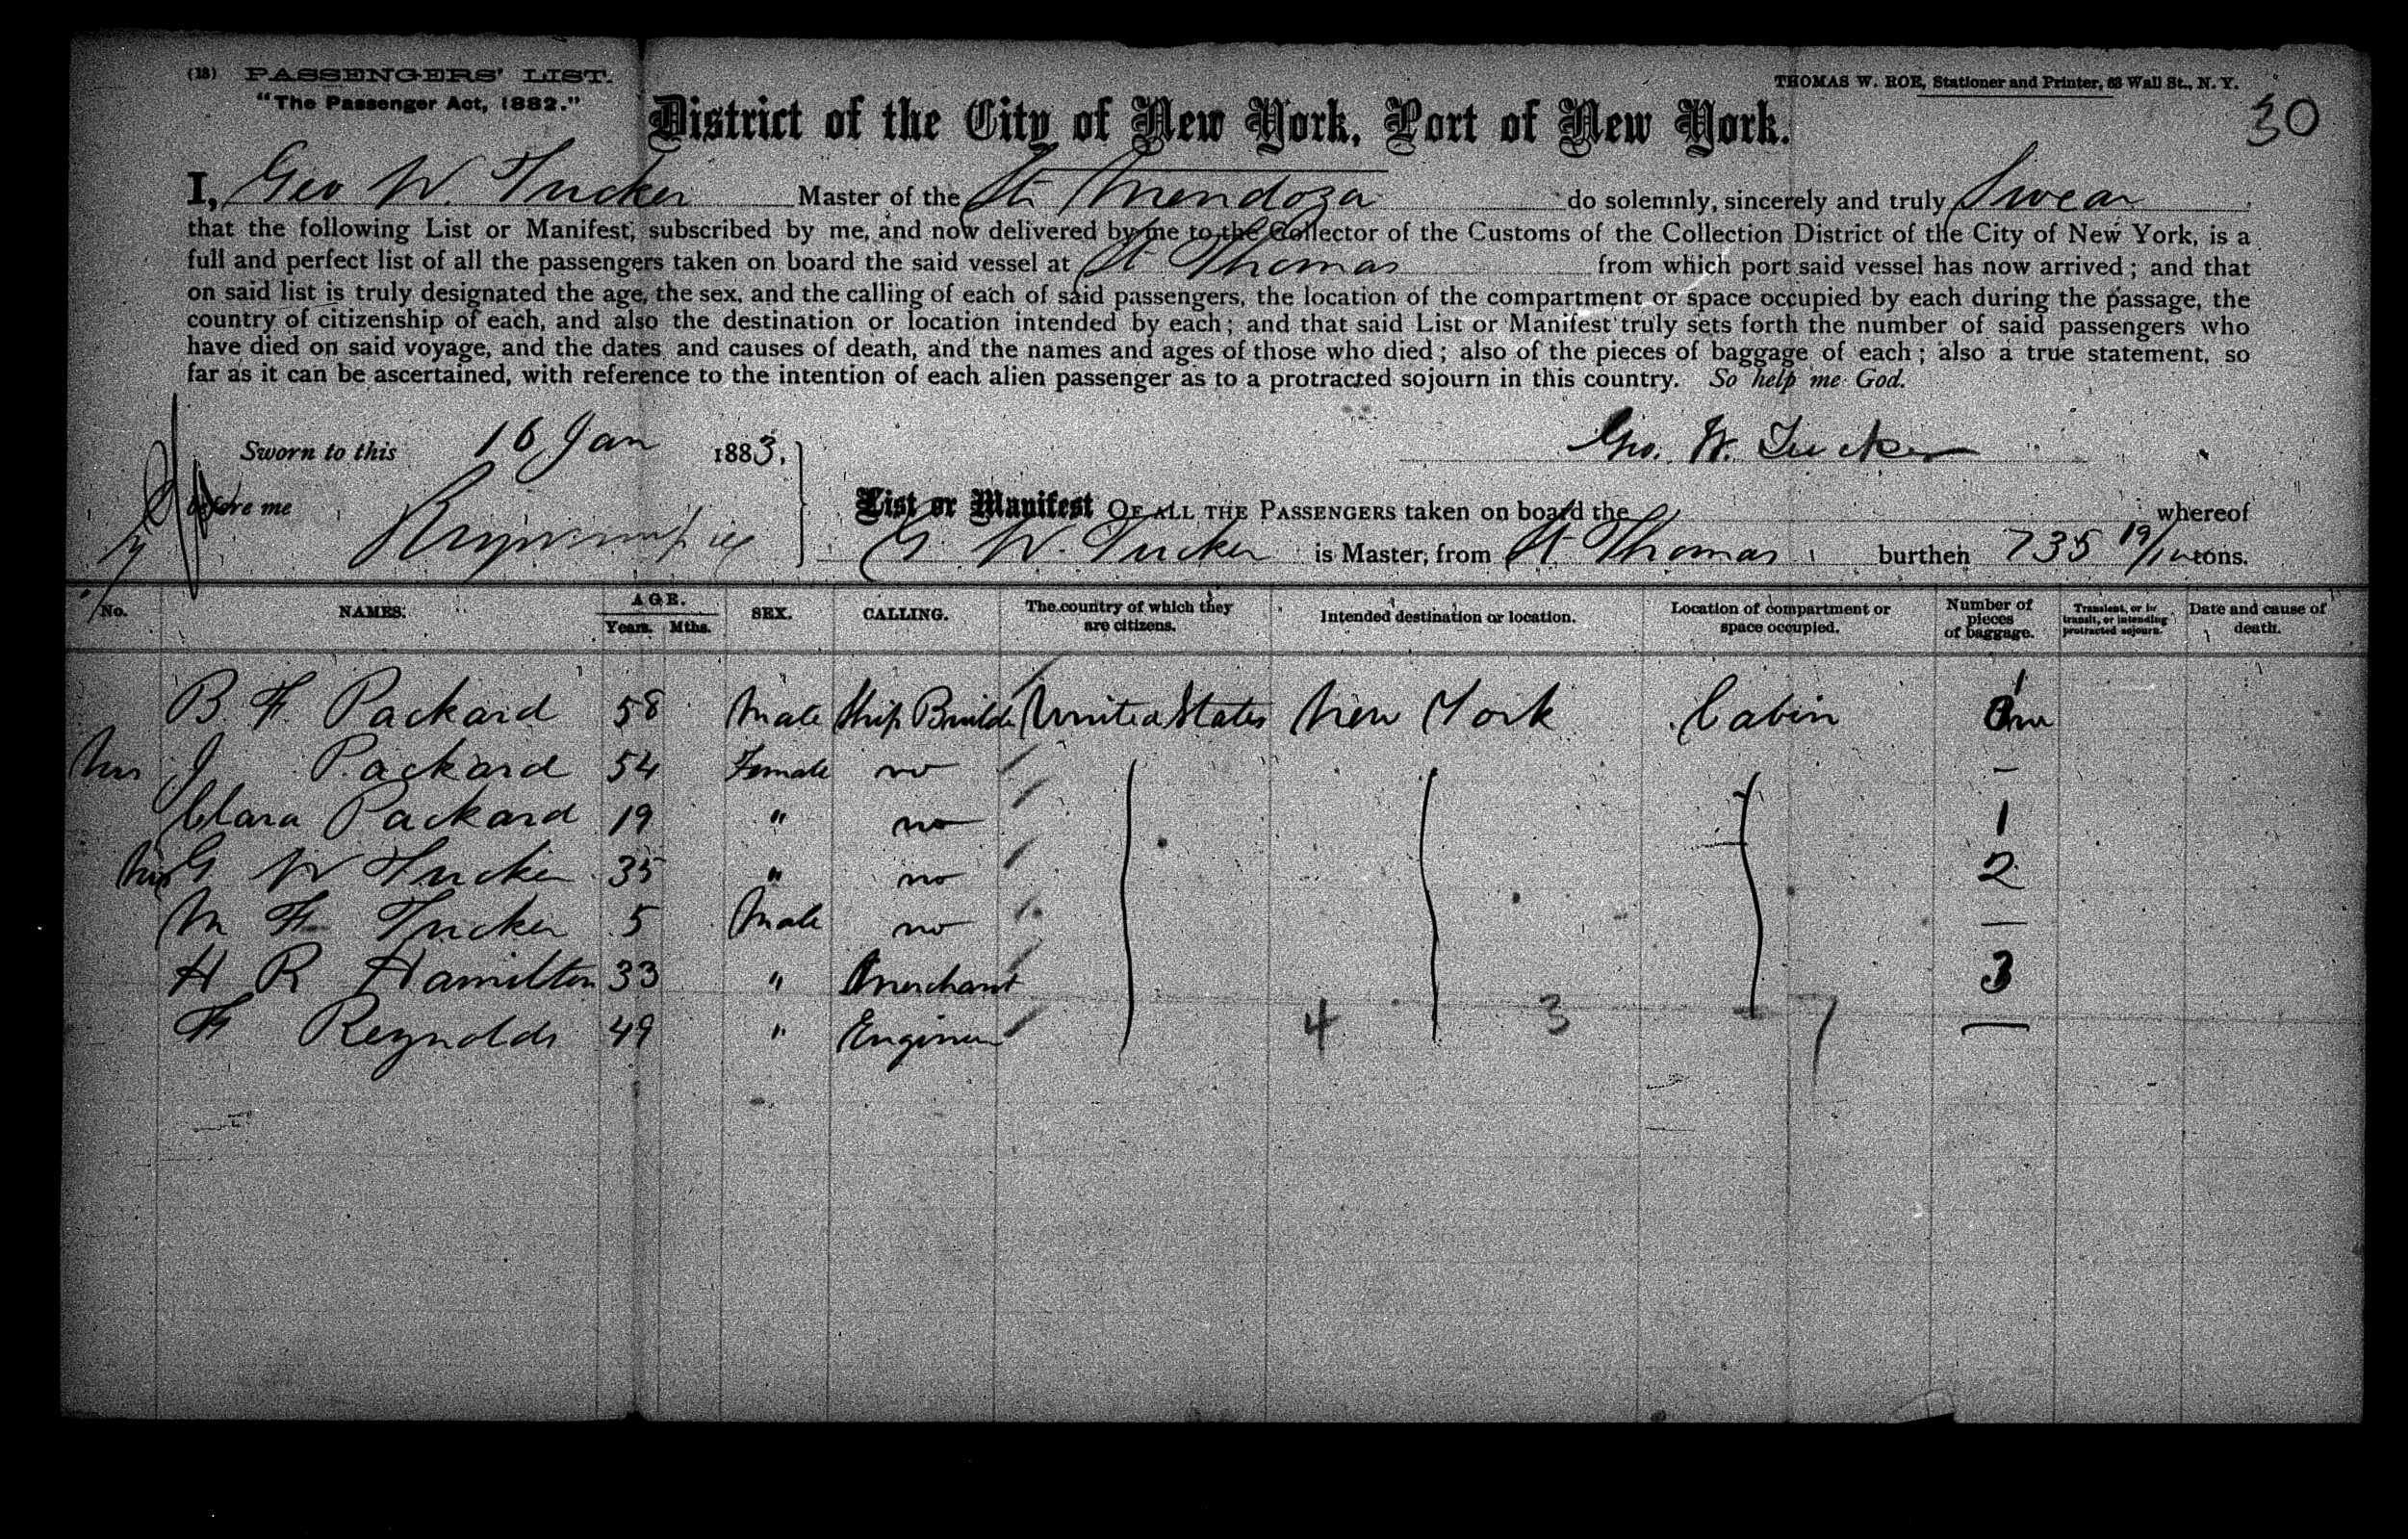 (18) PASSENGERS' LIST.
"The Passenger Act, 1882."
THOMAS W. ROE, Stationer and Printer, 63 Wall St., N. Y.
30
District of the City of New York, Port of New York.
I, Geo W. Tucker Master of the St. Mendoza do solemnly, sincerely and truly Swear
that the following List or Manifest, subscribed by me, and now delivered by me to the Collector of the Customs of the Collection District of the City of New York, is a
full and perfect list of all the passengers taken on board the said vessel at St Thomas from which port said vessel has now arrived; and that
on said list is truly designated the age, the sex, and the calling of each of said passengers, the location of the compartment or space occupied by each during the passage, the
country of citizenship of each, and also the destination or location intended by each; and that said List or Manifest truly sets forth the number of said passengers who
have died on said voyage, and the dates and causes of death, and the names and ages of those who died; also of the pieces of baggage of each; also a true statement, so
far as it can be ascertained, with reference to the intention of each alien passenger as to a protracted sojourn in this country. So help me God.
Sworn to this 16 Jan 1883,
Geo. W. Tucker
before me
List or Manifest OF ALL THE PASSENGERS taken on board the whereof
G. W. Tucker is Master, from St Thomas burthen 735 19/100 tons.
No. NAMES. AGE. Years. Mths. SEX. CALLING. The country of which they are citizens. Intended destination or location. Location of compartment or space occupied. Number of pieces of baggage. Transient, or in transit, or intending protracted sojourn. Date and cause of death.
B. F. Packard 58 Male Ship Builder United States New York Cabin 1
Mrs J Packard 54 Female no –
Clara Packard 19 " no 1
Mrs G W Tucker 35 " no 2
M F Tucker 5 Male no —
H R Hamilton 33 " Merchant 3
F Reynolds 49 " Engineer —
4 3 7